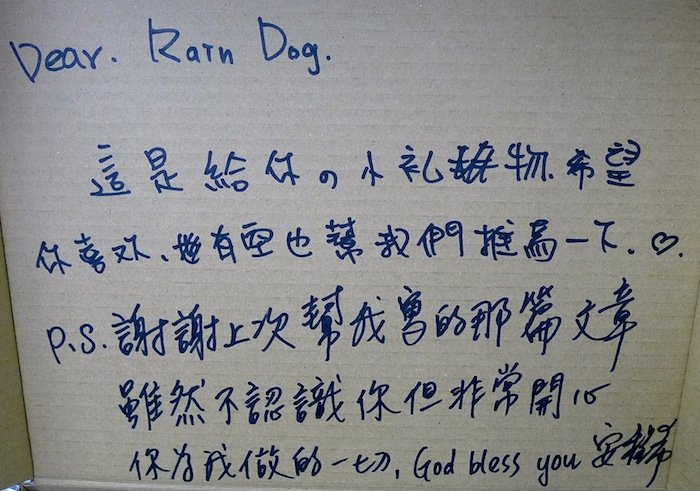 Dear. Rain Dog.
這是給你の小礼物.希望
你喜欢、有空也幫我們推薦一下.♡.
P.S.謝謝上次幫我寫的那篇文章
雖然不認識你但非常開心
你为我做的一切, God bless you 安